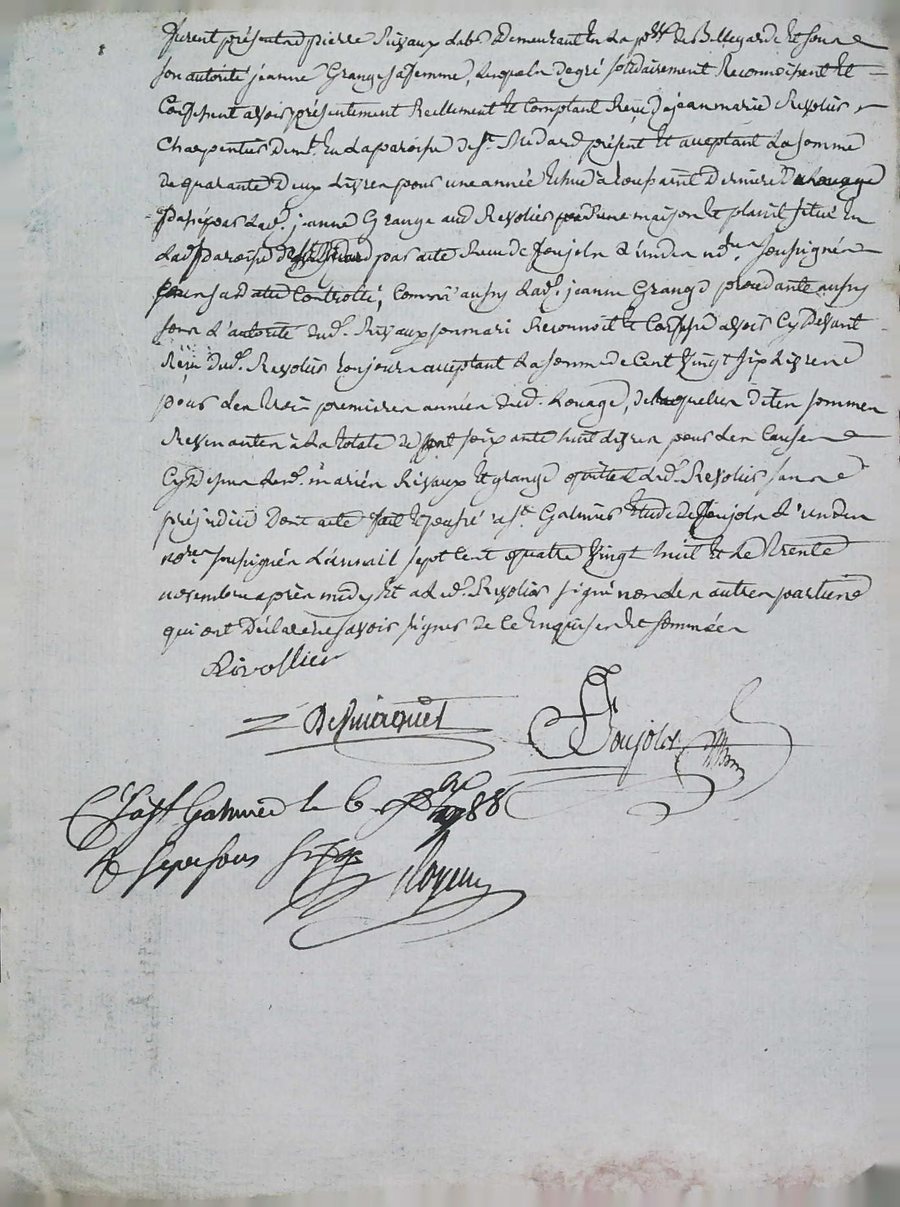 furent présents pierre Rivaux lab.r demeurant en la p.sse de Bellegarde et sous
son autorité jeanne Grange sa femme, lesquels de gré solidairement Reconnoissent et
Confessent avoir présentement Reellement et Comptant Reçu de jean marie Revolier
Charpentier dem.t en la paroisse de S.t Medard présent et acceptant la somme
de quarante deux Livres pour une année échue à toussaint derniere du Louage
passé par lad. jeanne Grange aud Revolier d'une maison et plassit situé en
lad paroisse de S.t Medard par acte Reçu de Joujoln & l'un des no.res soussignés
Controllé; Comm'aussy lad. jeanne Grange procédante aussy
sous l'autorité dud. Rivaux son mari Reconnoit et Confesse avoir Cy devant
Reçu dud. Revolier toujours acceptant la somme de Cent vingt six Livres
pour les trois premieres années dud. Louage, desquelles dites sommes
Revenantes à la totale de Cent soixante huit livres pour les Causes
Cy dessus lesd. mariés Rivaux et grange quittent led. Revolier sans
préjudice dont acte fait et passé a S.t Galmier Etude de Joujoln & l'un des
no.res soussignés l'an mil sept Cent quatre vingt huit et le trente
novembre après midy et a led. Revolier signé non les autres parties
qui ont Déclaré ne savoir signer de ce Enquises et sommées
Rivollier
Desmarquet Joujoln
C.lé a S.t Galmier le 6 Xbre 1788
R. sept sous six d. Royer